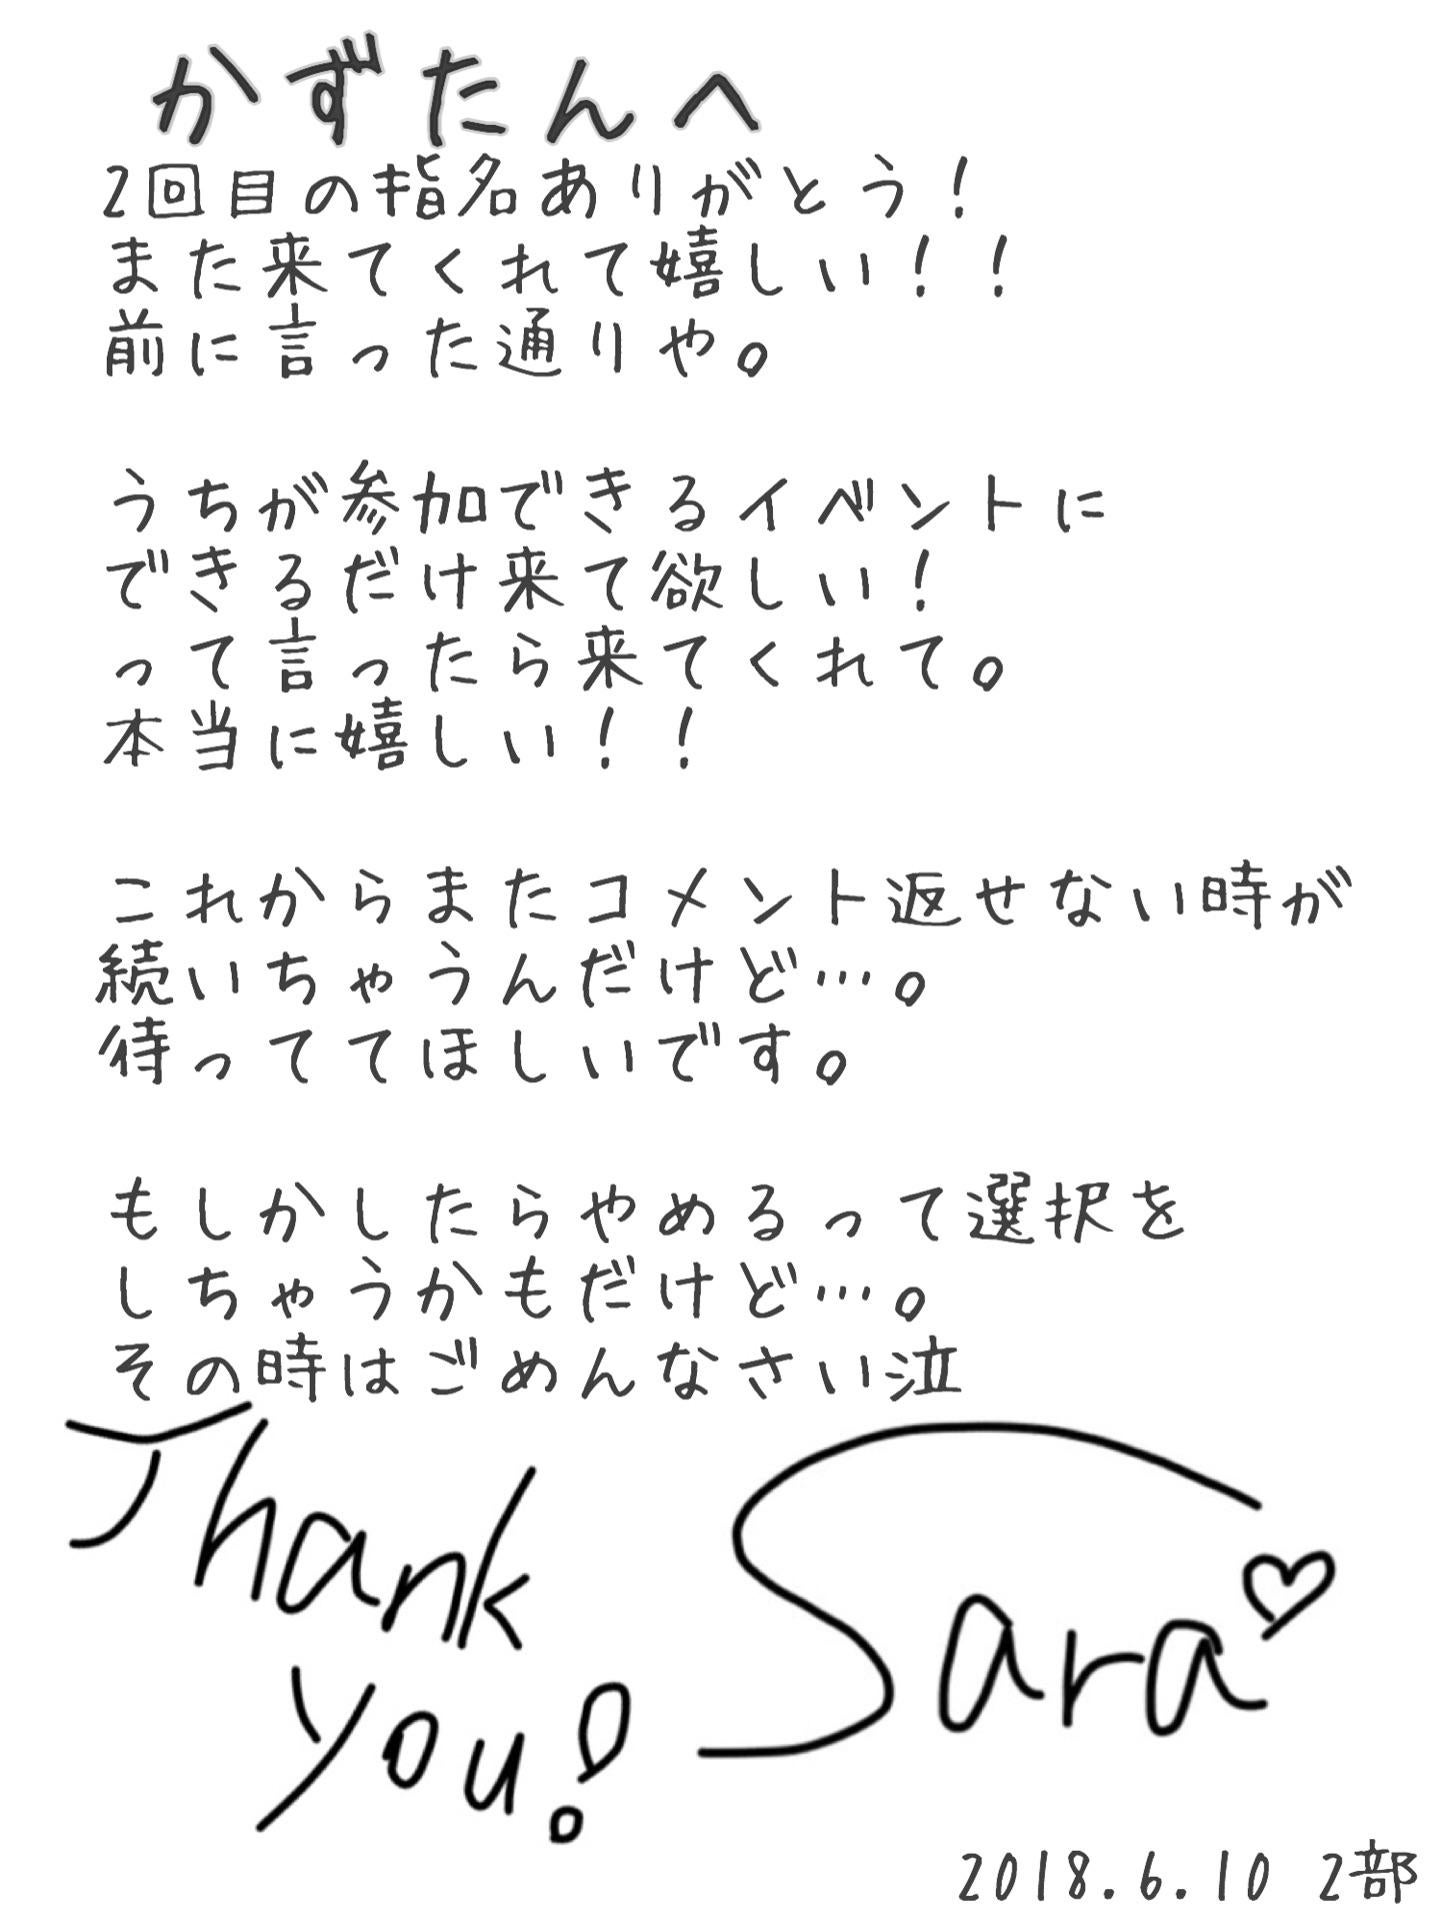 かずたんへ
2回目の指名ありがとう!
また来てくれて嬉しい!!
前に言った通りや。
うちが参加できるイベントに
できるだけ来て欲しい!
って言ったら来てくれて。
本当に嬉しい!!
これからまたコメント返せない時が
続いちゃうんだけど…。
待っててほしいです。
もしかしたらやめるって選択を
しちゃうかもだけど…。
その時はごめんなさい泣
Thank you! Sara♡
2018.6.10 2部